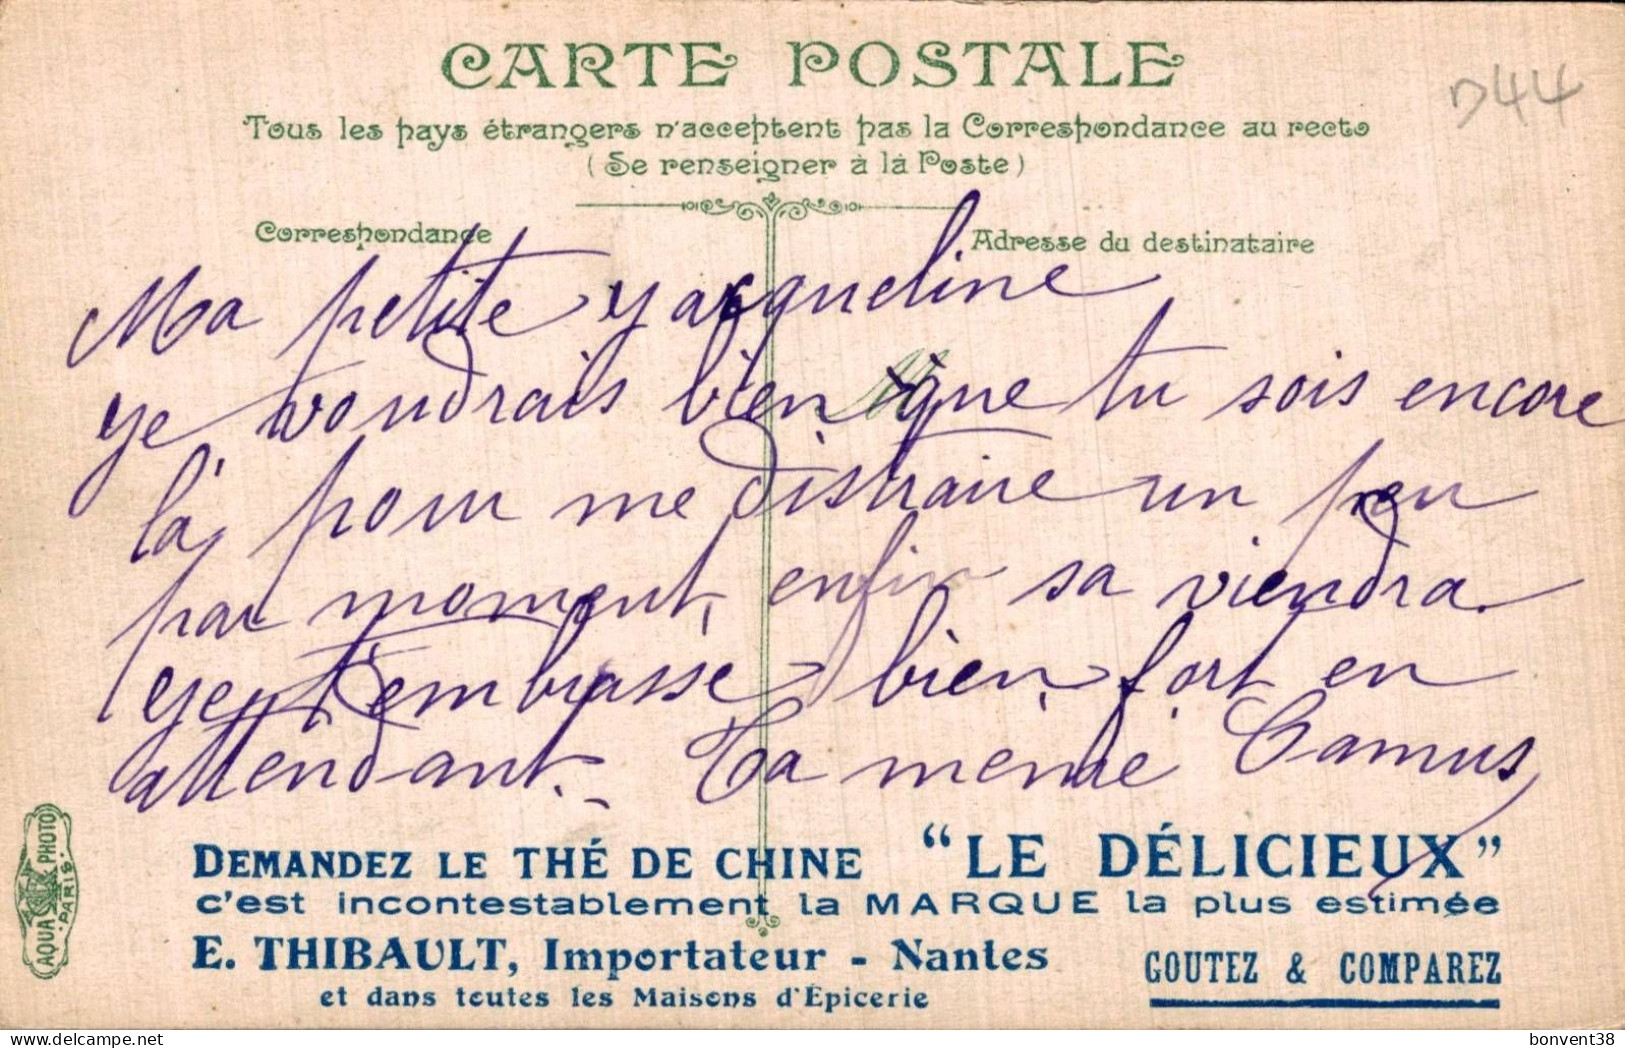 CARTE POSTALE
D44
Tous les pays étrangers n'acceptent pas la Correspondance au recto
(Se renseigner à la Poste)
Correspondance
Adresse du destinataire
Ma petite Jacqueline
je voudrais bien que tu sois encore
là, pour me distraire un peu
par moment, enfin sa viendra.
je t'embrasse bien fort en
attendant. Ta mémé Camus
AQUA PHOTO
PARIS
DEMANDEZ LE THÉ DE CHINE "LE DÉLICIEUX"
c'est incontestablement la MARQUE la plus estimée
E. THIBAULT, Importateur - Nantes
et dans toutes les Maisons d'Épicerie
GOUTEZ & COMPAREZ
bonvent38